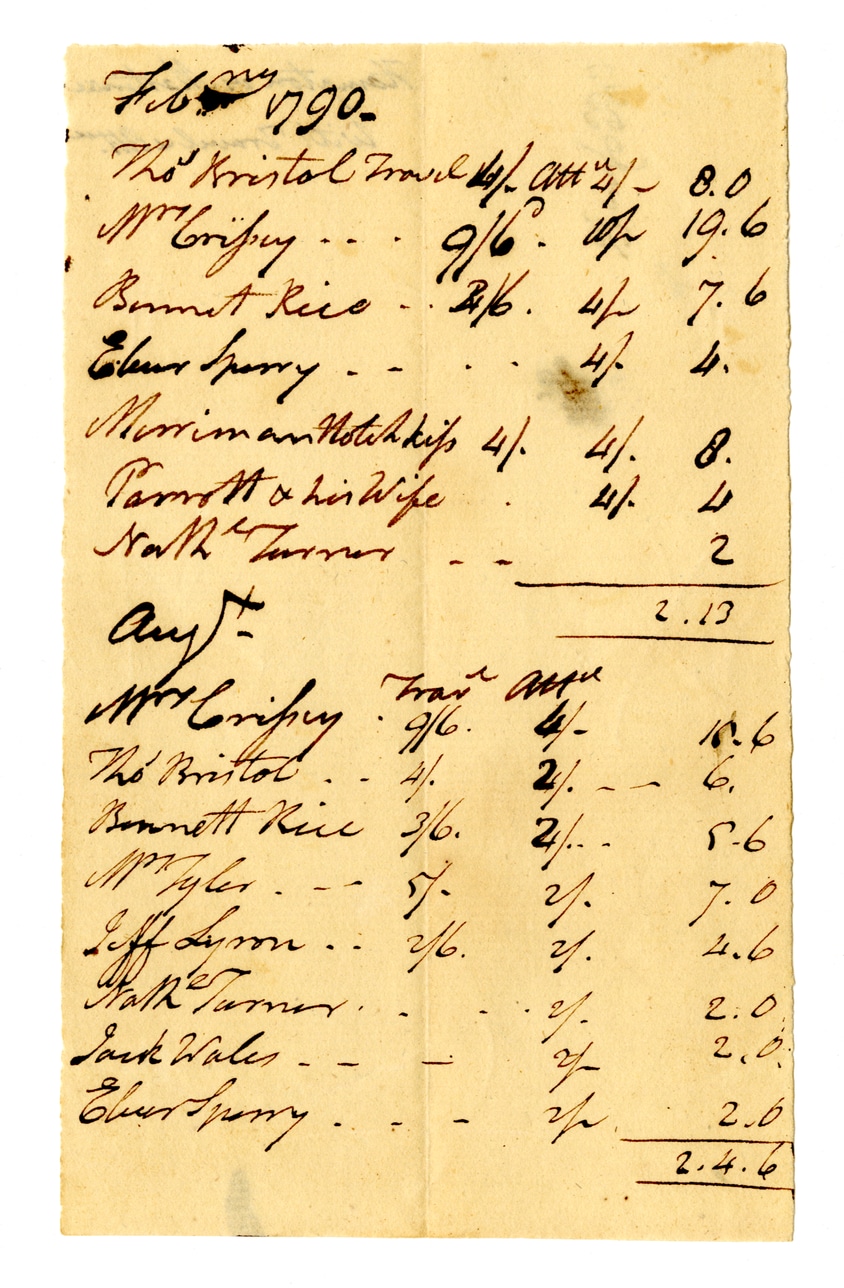 Feb.ry 1790.
Thos Bristol Travel 4/. Attd 4/- 8.0
Mrs Crissey - - . 9/6d . 10/- 19.6
Bennet Rice - . 3/6. 4/- 7.6
Eber Sperry - - . . 4/. 4.
Merriman Hotchkiss 4/. 4/. 8.
Parrott & his Wife . 4/. 4
Nathl Turner - - 2
2.13
Augst.
Travl Attd
Mrs Crissey . 9/6. 4/- 1 .6
Thos Bristol . - 4/. 2/. - - 6.
Bennett Rice 3/6. 2/. . - 5.6
Mrs Tyler . - - 5/- 2/. 7.0
Jeff Lyron . . 2/6. 2/. 4.6
Nathl Turner . - . . 2/. 2.0
Jack Wales - - - 2/- 2.0.
Eber Sperry . - - 2/- 2.0
2.4.6